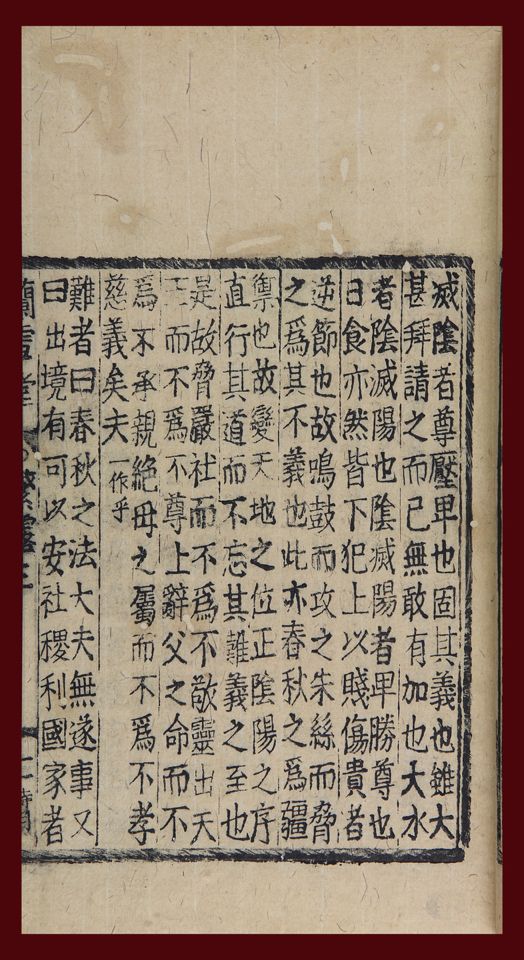 滅陰者尊壓卑也固其義也雖大
甚拜請之而已無敢有加也大水
者陰滅陽也陰滅陽者卑勝尊也
日食亦然皆下犯上以賤傷貴者
逆節也故鳴鼓而攻之朱絲而脅
之爲其不義也此亦春秋之爲彊
禦也故變天地之位正陰陽之序
直行其道而不忘其難義之至也
是故脅嚴社而不爲不敬靈出天
王而不爲不尊上辭父之命而不
爲不承親絕母之屬而不爲不孝
慈義矣夫一作乎
難者曰春秋之法大夫無遂事又
曰出境有可以安社稷利國家者
蘭雪堂 繁露三